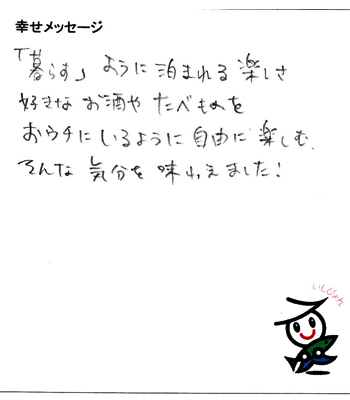 幸せメッセージ
「暮らす」ように泊まれる楽しさ
好きなお酒やたべものを
おウチにいるように自由に楽しむ.
そんな気分を味わえました!